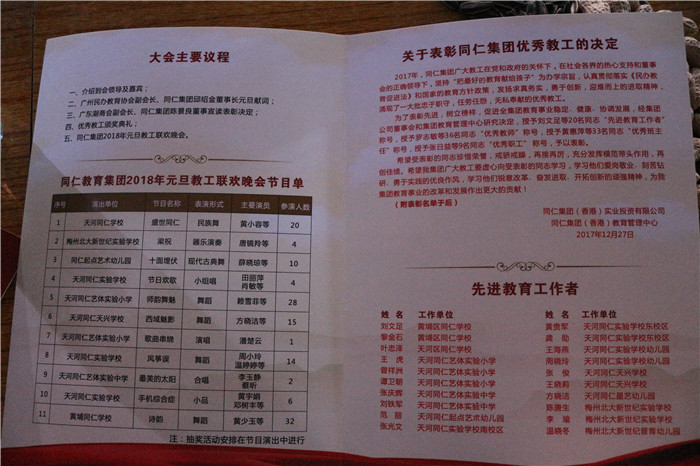 大会主要议程
一、介绍到会领导及嘉宾；
二、广州民办教育协会副会长、同仁集团邱绍金董事长元旦献词；
三、广东湖南商会副会长、同仁集团陈景良董事宣读表彰决定；
四、优秀教工颁奖典礼；
五、同仁集团2018年元旦教工联欢晚会。
同仁教育集团2018年元旦教工联欢晚会节目单
序号 演出单位 节目名称 表演形式 主要演员 参演人数
1 天河同仁学校 盛世同仁 民族舞 黄小容等 20
2 梅州北大新世纪实验学校 梁祝 器乐演奏 唐镜羚等 4
3 同仁起点艺术幼儿园 十面埋伏 现代古典舞 薛晓琼等 10
4 天河同仁实验学校 节日欢歌 小组唱 田丽萍 肖敏等 4
5 天河同仁艺体实验小学 师韵舞魅 舞蹈 赖雪菲等 28
6 天河同仁天兴学校 西域魅影 舞蹈 方晓洁等 15
7 天河同仁艺体实验小学 歌曲串烧 演唱 潘楚云 1
8 天河同仁实验学校 风筝误 舞蹈 周小玲 温婷婷等 14
9 天河同仁艺体实验中学 最美的太阳 合唱 李玉静 蔡昕 2
10 天河同仁实验学校 手机综合症 小品 黄宇娟 邓树丰等 6
11 黄埔同仁学校 诗韵 舞蹈 黄少玉等 32
注：抽奖活动安排在节目演出中进行
关于表彰同仁集团优秀教工的决定
2017年，同仁集团广大教工在党和政府的关怀下，在社会各界的热心支持和董事
会的正确领导下，坚持“把最好的教育献给孩子”为办学宗旨，认真贯彻落实《民办教
育促进法》和国家的教育方针政策，发扬求真务实，勇于创新，迎难而上的进取精神，
涌现了一大批忠于职守，任劳任怨，无私奉献的优秀教工。
为了表彰先进，树立榜样，促进全集团教育事业稳定、健康、协调发展，经集团
公司董事会和集团教育管理中心研究决定，授予刘文足等20名同志“先进教育工作者”
称号，授予罗志敏等36名同志“优秀教师”称号，授予黄惠萍等33名同志“优秀班主
任”称号，授予张日益等9名同志“优秀职工”称号，予以表彰。
希望受表彰的同志珍惜荣誉，戒骄戒躁，再接再厉，充分发挥模范带头作用，再
创佳绩。希望我集团广大教工要虚心向受表彰的同志学习，学习他们爱岗敬业、刻苦钻
研、勇于实践的优良作风，学习他们锐意改革、奋发进取、开拓创新的顽强精神，为我
集团教育事业的改革和发展作出更大的贡献！
（附表彰名单于后）
同仁集团（香港）实业投资有限公司
同仁集团（香港）教育管理中心
2017年12月27日
先进教育工作者
姓 名 工作单位 姓 名 工作单位
刘文足 黄埔区同仁学校 黄贵军 天河同仁实验学校东校区
黎金石 黄埔同仁学校 龚勋 天河同仁实验学校东校区
叶志泽 天河区同仁学校 王海燕 天河同仁实验学校幼儿园
王虎 天河同仁艺体实验小学 周晓玲 天河同仁实验学校幼儿园
曾祥洲 天河同仁艺体实验小学 张俊 天河同仁天兴学校
谭卫朝 天河同仁艺体实验小学 王晓莉 天河同仁天兴学校
张庆辉 天河同仁艺体实验中学 方晓洁 天河同仁星艺幼儿园
刘铁军 天河同仁艺体实验中学 陈唐生 梅州北大新世纪实验学校
范丽 天河同仁起点艺术幼儿园 李瑜 梅州北大新世纪实验学校
张光文 天河同仁实验学校南校区 温晓冬 梅州北大新世纪碧育幼儿园